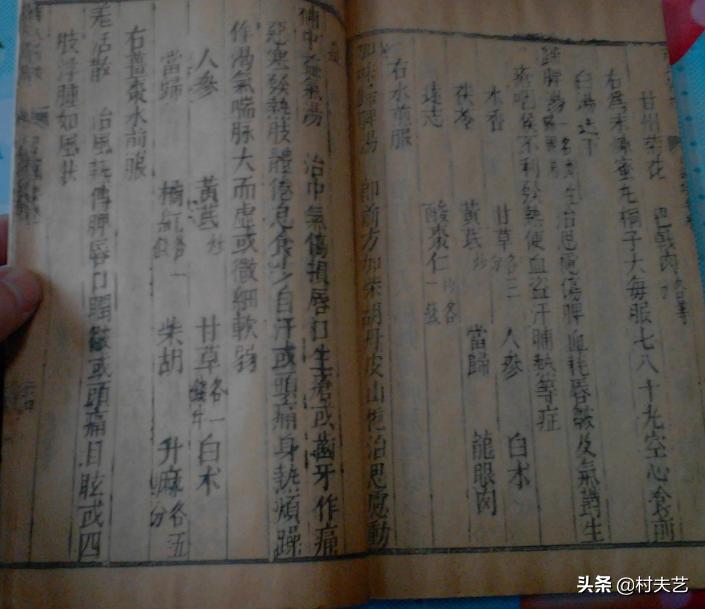 甘州菊花 巴戟肉各等
右爲末煉蜜丸桐子大每服七八十丸空心食前
白湯送下
歸脾湯一名 治思慮傷脾血耗唇皺及氣鬱生
瘡咽喉不利發熱便血盜汗晡熱等症
木香 甘草各三 人參 白术
茯苓 黃芪炒 當歸 龍眼肉
遠志 酸棗仁炒各一錢
右水煎服
加味歸脾湯 即前方加柴胡丹皮山梔治思慮動
補中益氣湯 治中氣傷損唇口生瘡或齒牙作痛
惡寒發熱肢體倦怠食少自汗或頭痛身熱煩躁
作渴氣喘脉大而虛或微細軟弱
人參 黃芪炒 甘草各一錢半 白术
當歸 橘紅各一錢 柴胡 升麻各五分
右薑棗水煎服
羌活散 治風耗傳脾唇口瞤皺或頭痛目眩或四
肢浮腫如風狀
头条 @村夫艺